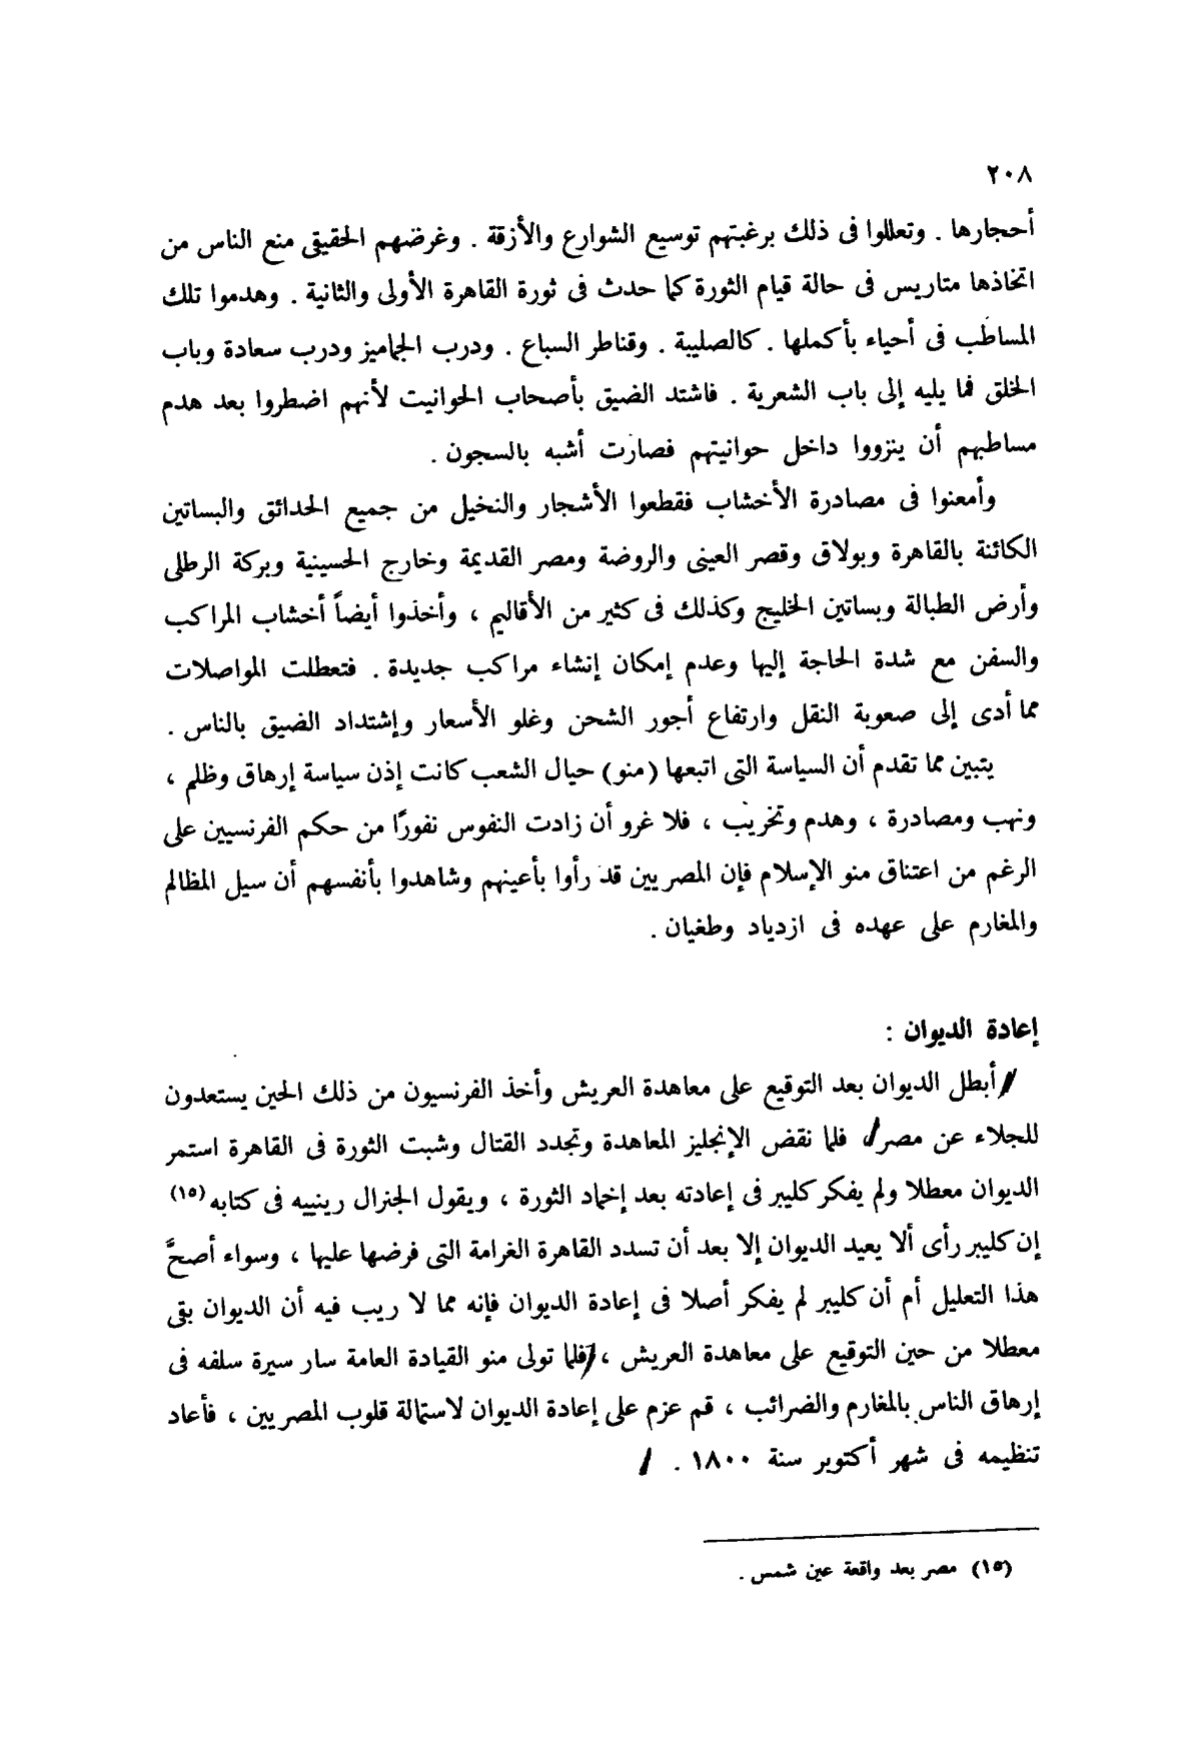 ٢٠٨
أحجارها . وتعللوا فى ذلك برغبتهم توسيع الشوارع والأزقة . وغرضهم الحقيقى منع الناس من
اتخاذها متاريس فى حالة قيام الثورة كما حدث فى ثورة القاهرة الأولى والثانية . وهدموا تلك
المساطب فى أحياء بأكملها . كالصليبة . وقناطر السباع . ودرب الجماميز ودرب سعادة وباب
الخلق فما يليه إلى باب الشعرية . فاشتد الضيق بأصحاب الحوانيت لأنهم اضطروا بعد هدم
مساطبهم أن ينزووا داخل حوانيتهم فصارت أشبه بالسجون .
وأمعنوا فى مصادرة الأخشاب فقطعوا الأشجار والنخيل من جميع الحدائق والبساتين
الكائنة بالقاهرة وبولاق وقصر العينى والروضة ومصر القديمة وخارج الحسينية وبركة الرطلى
وأرض الطبالة وبساتين الخليج وكذلك فى كثير من الأقاليم ، وأخذوا أيضاً أخشاب المراكب
والسفن مع شدة الحاجة إليها وعدم إمكان إنشاء مراكب جديدة . فتعطلت المواصلات
مما أدى إلى صعوبة النقل وارتفاع أجور الشحن وغلو الأسعار وإشتداد الضيق بالناس .
يتبين مما تقدم أن السياسة التى اتبعها (منو) حيال الشعب كانت إذن سياسة إرهاق وظلم ،
ونهب ومصادرة ، وهدم وتخريب ، فلا غرو أن زادت النفوس نفورًا من حكم الفرنسيين على
الرغم من اعتناق منو الإسلام فإن المصريين قد رأوا بأعينهم وشاهدوا بأنفسهم أن سيل المظالم
والمغارم على عهده فى ازدياد وطغيان .
إعادة الديوان :
أبطل الديوان بعد التوقيع على معاهدة العريش وأخذ الفرنسيون من ذلك الحين يستعدون
للجلاء عن مصر ، فلما نقض الإنجليز المعاهدة وتجدد القتال وشبت الثورة فى القاهرة استمر
الديوان معطلا ولم يفكر كليبر فى إعادته بعد إخماد الثورة ، ويقول الجنرال رينييه فى كتابه (١٥)
إن كليبر رأى ألا يعيد الديوان إلا بعد أن تسدد القاهرة الغرامة التى فرضها عليها ، وسواء أصحَّ
هذا التعليل أم أن كليبر لم يفكر أصلا فى إعادة الديوان فإنه مما لا ريب فيه أن الديوان بقى
معطلا من حين التوقيع على معاهدة العريش ، فلما تولى منو القيادة العامة سار سيرة سلفه فى
إرهاق الناس بالمغارم والضرائب ، قم عزم على إعادة الديوان لاستمالة قلوب المصريين ، فأعاد
تنظيمه فى شهر أكتوبر سنة ١٨٠٠ .
(١٥) مصر بعد واقعة عين شمس .